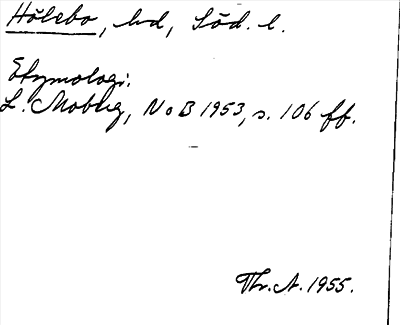 Hölebo, hd, Söd. l.
Etymologi:
L. Moberg, NoB 1953, s. 106 ff.
Thr. A. 1955.